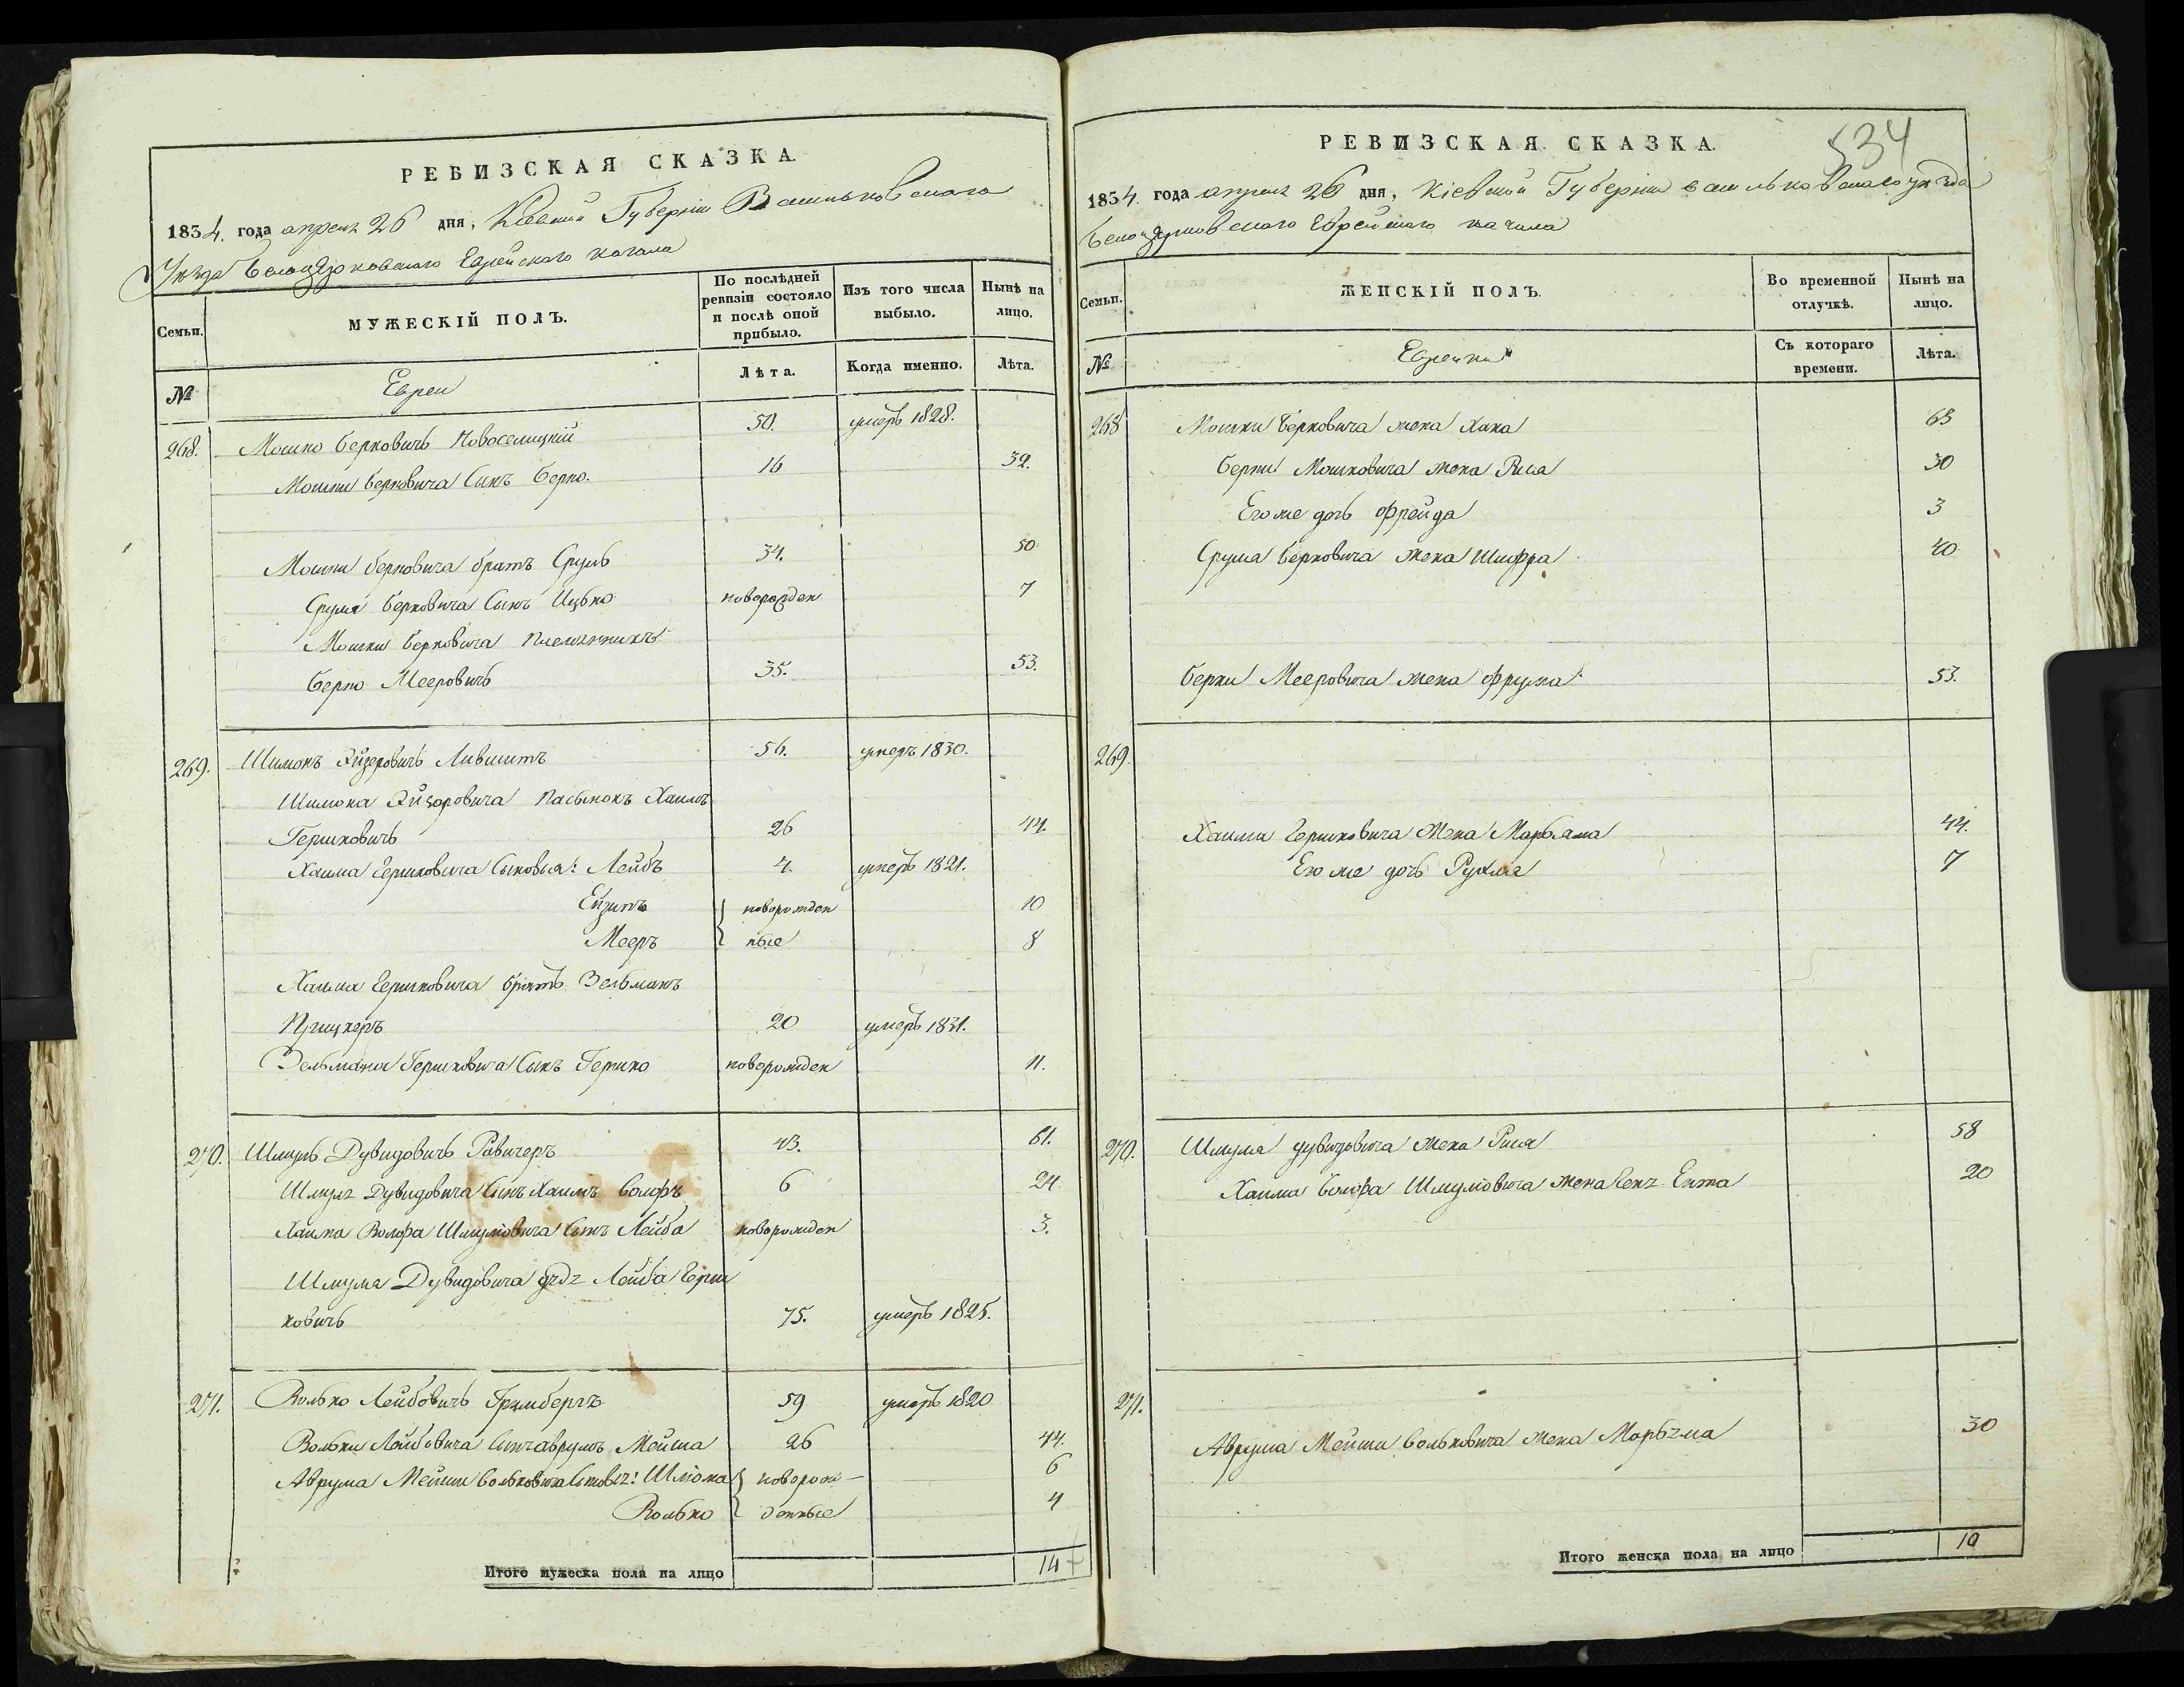 РЕВИЗСКАЯ СКАЗКА.
1834. года апреля 26 дня, Киевской Губерніи Васильковского
Уезда Белоцерковского Еврейского кагала
Семьи.
МУЖЕСКІЙ ПОЛЪ.
По послѣдней ревизіи состояло и послѣ оной прибыло.
Изъ того числа выбыло.
Нынѣ на лицо.
№
Евреи
Лѣта.
Когда именно.
Лѣта.
268. Мошко Берковичь Новоселицкій 50. умерь 1828.
Мошки Берковича Сынъ Берко. 16 32.
Мошки Берковича братъ Сруль 34. 50
Сруля Берковича Сынъ Ицько новорожден 7
Мошки Берковича племянникъ
Берко Мееровичь 35. 53.
269. Шимонъ Эйзеровичь Лившитъ 56. умеръ 1830.
Шимона Эйзоровича пасынокъ Хаимъ
Гершковичь 26 44.
Хаима Гершковича Сыновья: Лейбъ 4. умерь 1821.
Ейзикъ новорожден 10
Мееръ ные 8
Хаима Гершковича братъ Зельманъ
Прицкеръ 20 умерь 1831.
Зельмана Гершковича Сынъ Гершко новорожден 11.
270. Шмуль Дувидовичь Равичеръ 43. 61.
Шмуля Дувидовича Сынъ Хаимъ Волфъ 6 24
Хаима Волфа Шмулиовича Сынъ Лейба новорожден 3.
Шмуля Дувидовича дядя Лейба Герш
ковичь 75. умерь 1825.
271. Волько Лейбовичь Гримбергъ 59 умерь 1820
Вольки Лейбовича Сынъ Аврумъ Мейша 26 44.
Аврума Мейши Вольковича Сыновья: Шліома новорож- 6
Волько денные 4
Итого мужеска пола на лицо 14
534
РЕВИЗСКАЯ СКАЗКА.
1834. года апреля 26 дня, Кіевской Губерніи Васильковского уезда
Белоцерковского Еврейского кагала
Семьи.
ЖЕНСКІЙ ПОЛЪ.
Во временной отлучкѣ.
Нынѣ на лицо.
№
Еврейки
Съ котораго времени.
Лѣта.
268 Мошки Берковича жена Хана 63
Берки Мошковича жена Рися 30
Его же дочь Фрейда 3
Сруля Берковича жена Шифра 40
Берки Мееровича жена Фрума 53.
269.
Хаима Гершковича жена Марьяма 44.
Его же дочь Рухля 7
270. Шмуля Дувидовича жена Рися 58
Хаима Волфа Шмулиовича жена Ента 20
271.
Аврума Мейши Вольковича жена Марьяма 30
Итого женска пола на лицо 10